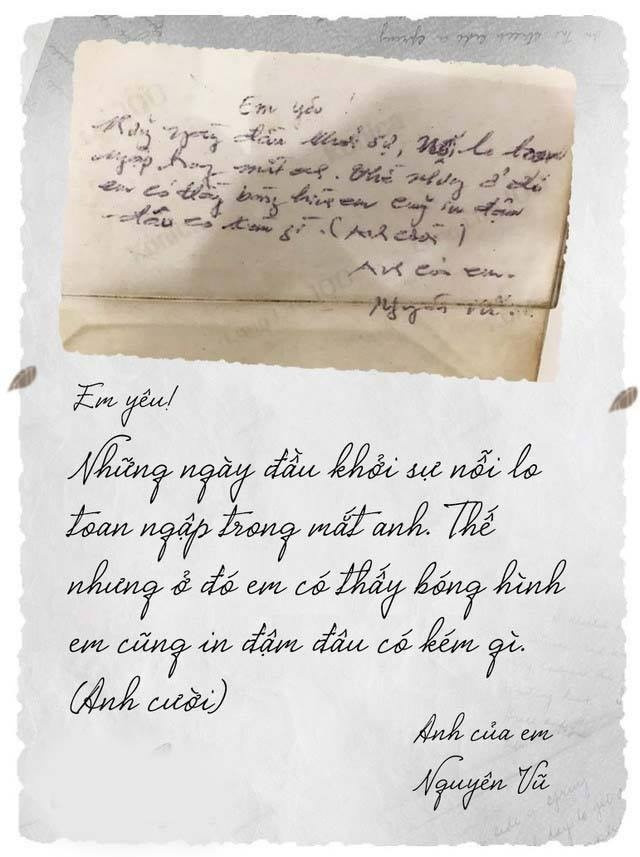 Em yêu!
Những ngày đầu khởi sự, nỗi lo toan
ngập trong mắt anh. Thế nhưng ở đó
em có thấy bóng hình em cũng in đậm
đâu có kém gì. (Anh cười)
Anh của em.
Nguyên Vũ
Em yêu!
Những ngày đầu khởi sự nỗi lo
toan ngập trong mắt anh. Thế
nhưng ở đó em có thấy bóng hình
em cũng in đậm đâu có kém gì.
(Anh cười)
Anh của em
Nguyên Vũ